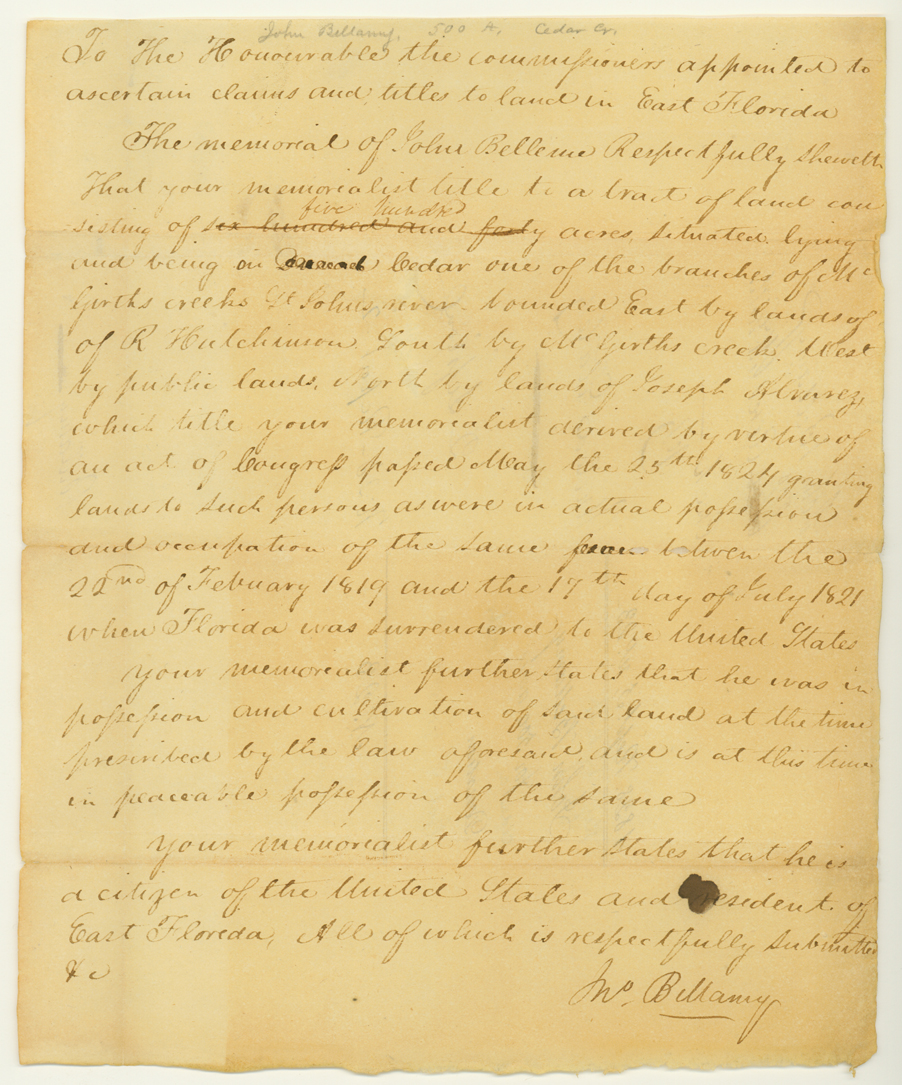 John Bellamy, 500 A, Cedar Cr.
To The Honourable the commissioners appointed to
ascertain claims and titles to land in East Florida
The memorial of John Belleme Respectfully sheweth
That your memorialist title to a tract of land con
five hundred
sisting of six hundred and forty acres, situated lying
and being on Cedar one of the branches of Mc
Girths creeks St Johns river bounded East by lands of
of R Hutchinson South by McGirths creek, West
by public lands, North by lands of Joseph Alvarez,
which title your memorialist derived by virtue of
an act of Congress passed May the 25th 1824 granting
lands to such persons as were in actual possession
and occupation of the same betwen the
22nd of Febuary 1819 and the 17th day of July 1821
when Florida was surrendered to the United States
your memorialist further states that he was in
possession and cultivation of said land at the time
prescribed by the law aforesaid, and is at this time
in peaceable possession of the same
your memorialist further states that he is
a citizen of the United States and resident of
East Florida, All of which is respectfully submitted
&c
Jno. Bellamy